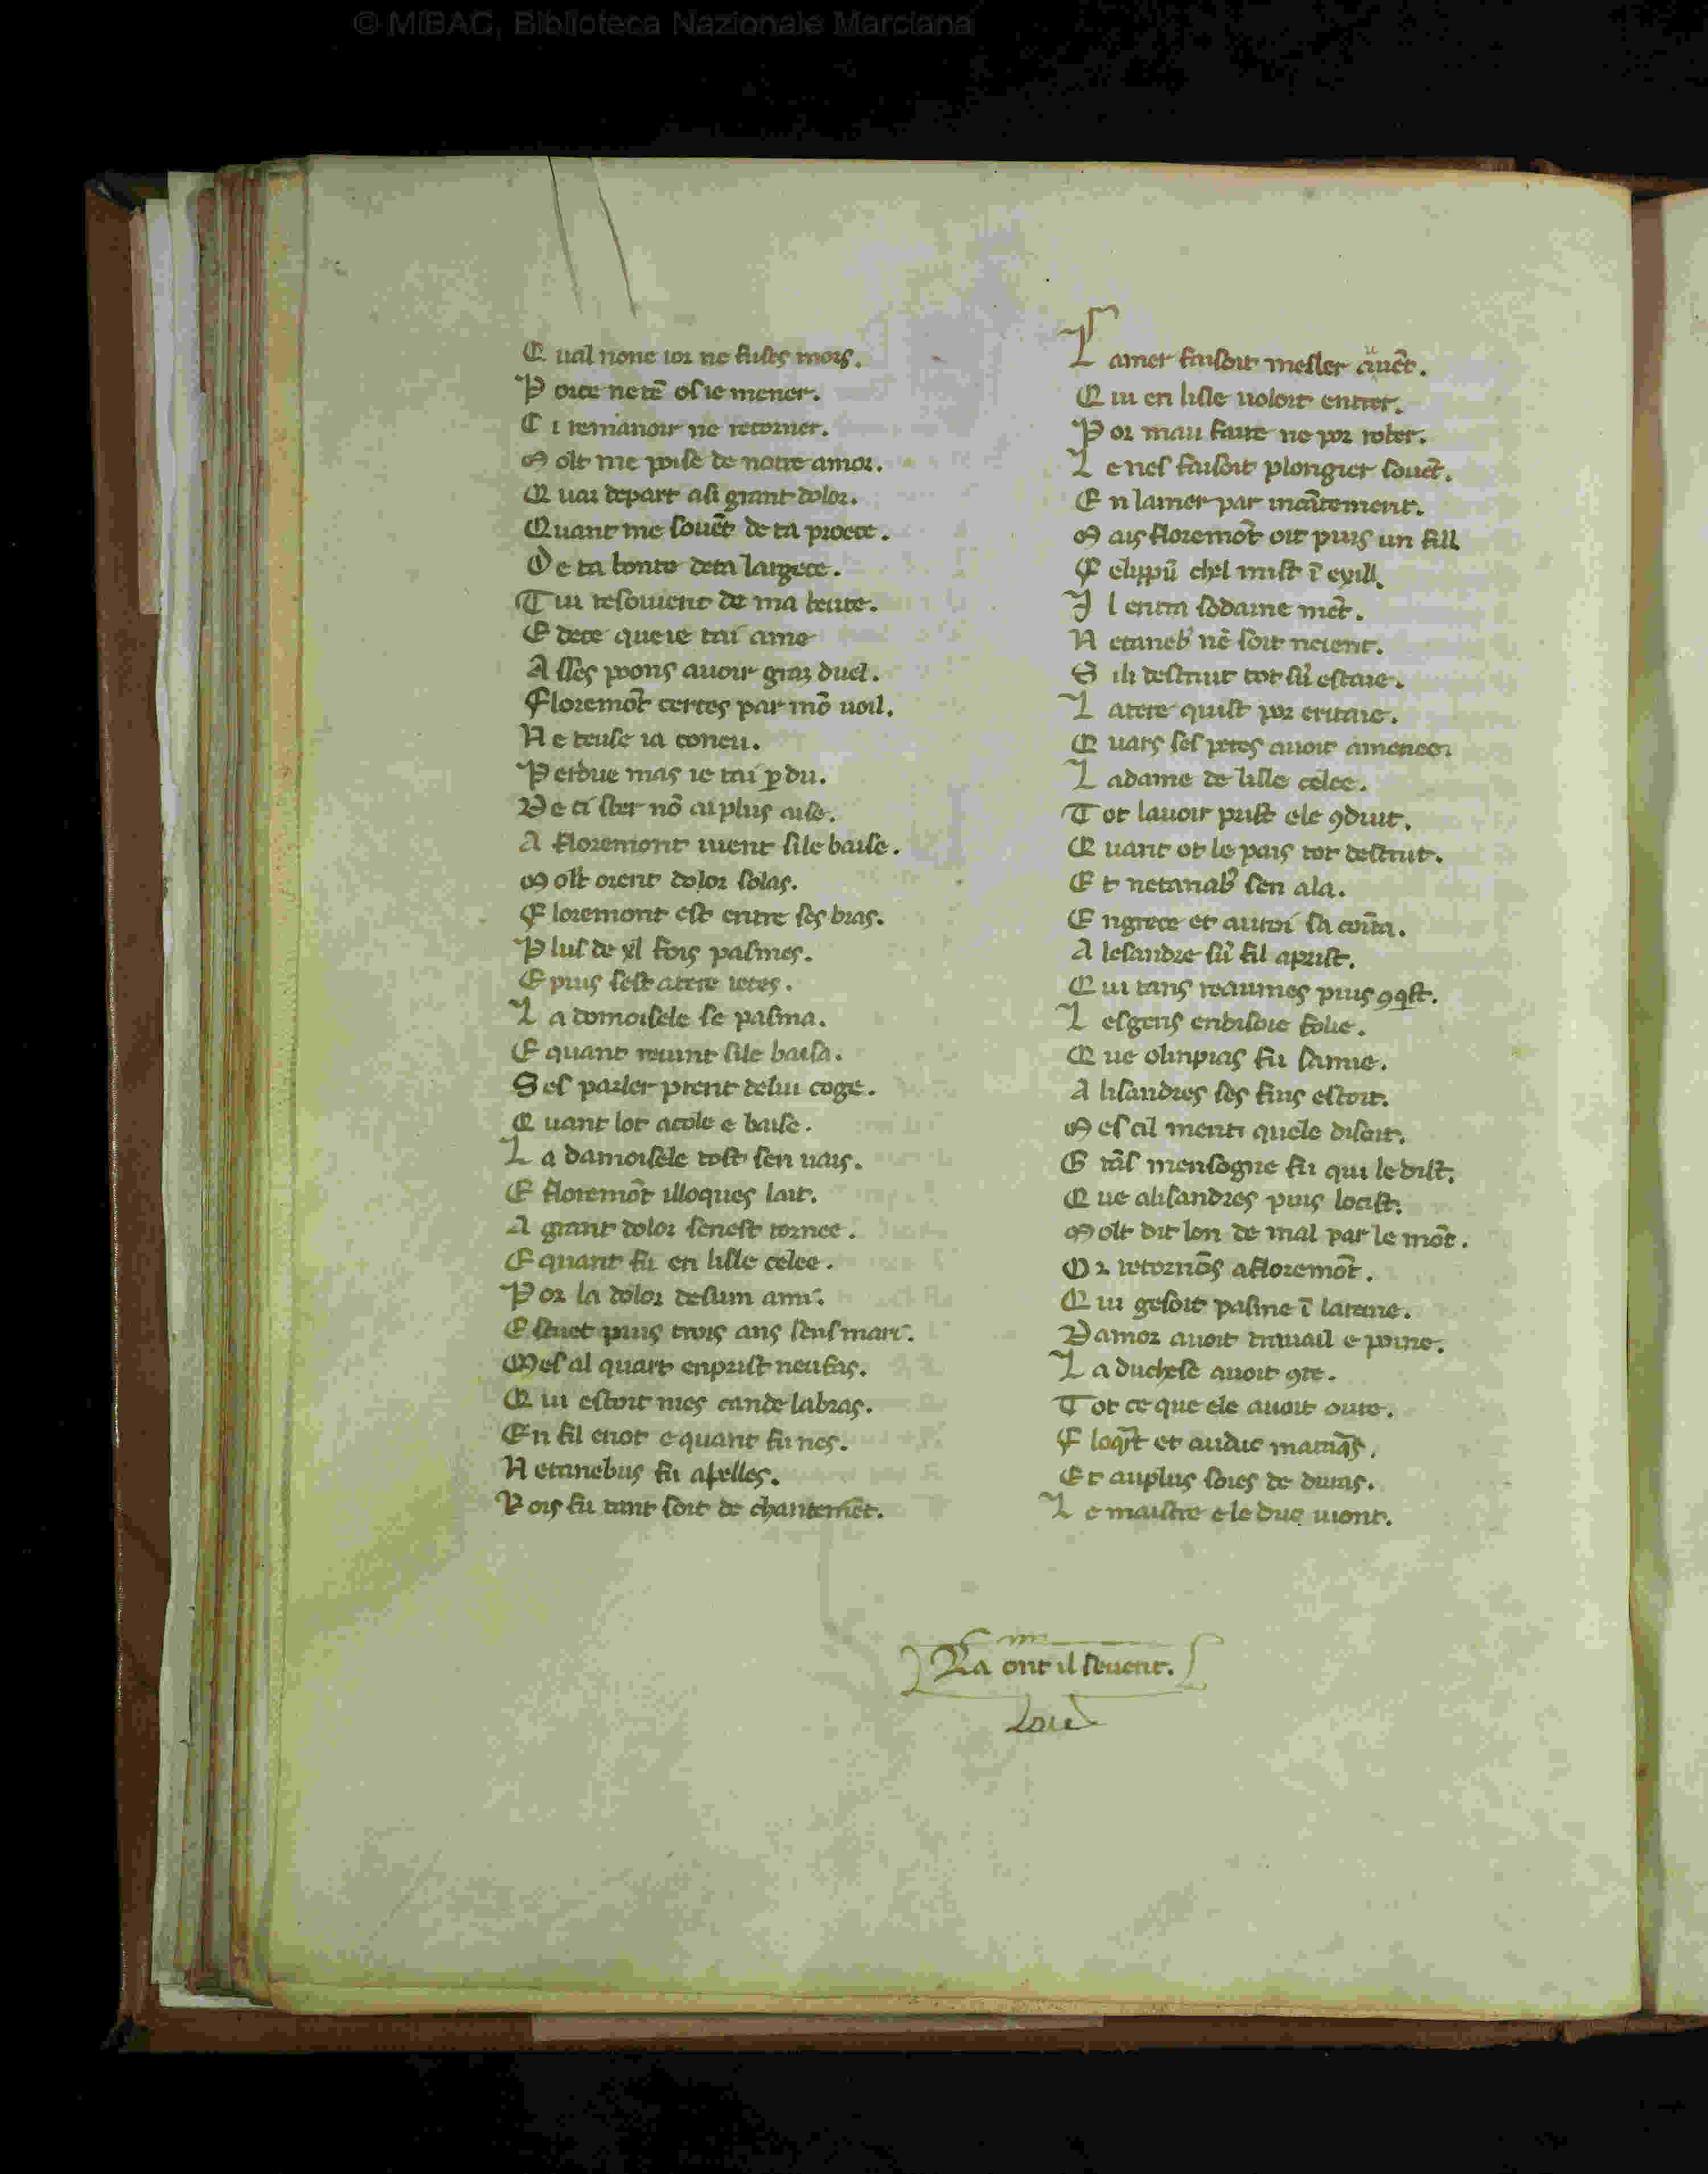 © MiBAC, Biblioteca Nazionale Marciana
C ual none ior ne fustes mors.
P orce ne tē os ie mener.
C i remanoir ne retorner.
M olt me poise de notre amor.
Q uai depart asi grant dolor.
Quant me souēt de ta proece.
D e ta bonte deta largece.
T ui resouient de ma beute.
E dece queie tai ame
A sses poons auoir graz duel.
Floremōt certes par mō uoil.
N e teuse ia coneu.
P erdue mas ie tai ꝑdu.
D e ci ster nō ai plus aise.
A floremont uient sile baise.
M olt orent dolor solas.
F loremont est entre ses bras.
P lus de xl fois pasmes.
E puis sest atere ietes.
L a domoisele se pasma.
E quant reuint sile baisa.
S es parler prent delui coge.
Q uant lot acole e baise.
L a damoisele tost sen uais.
E floremōt illoques lait.
A grant dolor senest tornee.
E quant fu en lisle celee.
P or la dolor desum ami.
E stuet puis trois ans sens mari.
Mes al quart enprist neufas.
Q ui estoit nies candelabras.
En fil enot e quant fu nes.
N etanebus fu apelles.
R ois fu tant soit de chantemēt.
L amer faisoit mesler auēt.
Q ui en lisle uoloit entrer.
P or mau faire ne por rober.
L e nes faisoit plongier souēt.
E n lamer par inCātement.
M ais floremōt oit puis un fill
F elippū chel mist ī exill.
I l entra sodaine mēt.
N etaneb' nē soit neient.
S ili destruit tot sū estaie.
L atere quist por eritaie.
Q uars ses peres auoit ameneer
L adame de lisle celee.
T ot lauoir prist ele ꝯduit.
Q uant ot le pais tot destruit.
E t netanab' sen ala.
E ngrece et autoi sa cōtra.
A lesandre sū fil aprist.
Q ui tans reaumes puis ꝯqist.
L esgens endisoie folie.
Q ue olinpias fu samie.
A lisandres ses fius estoit.
M es cil menti quele disoit.
G rās mensogne fu qui le dist.
Q ue alisandres puis locist.
M olt dit lon de mal par le mōt.
O r retornōs afloremōt.
Q ui gesoit pasme ī latene.
D amor auoit trauail e poine.
L a duchese auoit ꝯte.
T ot ce que ele auoit oure.
F loqart et auduc matuas.
Et auplus soies de duras.
L e maistre e le duc uiont.
Ra ont il seuent.